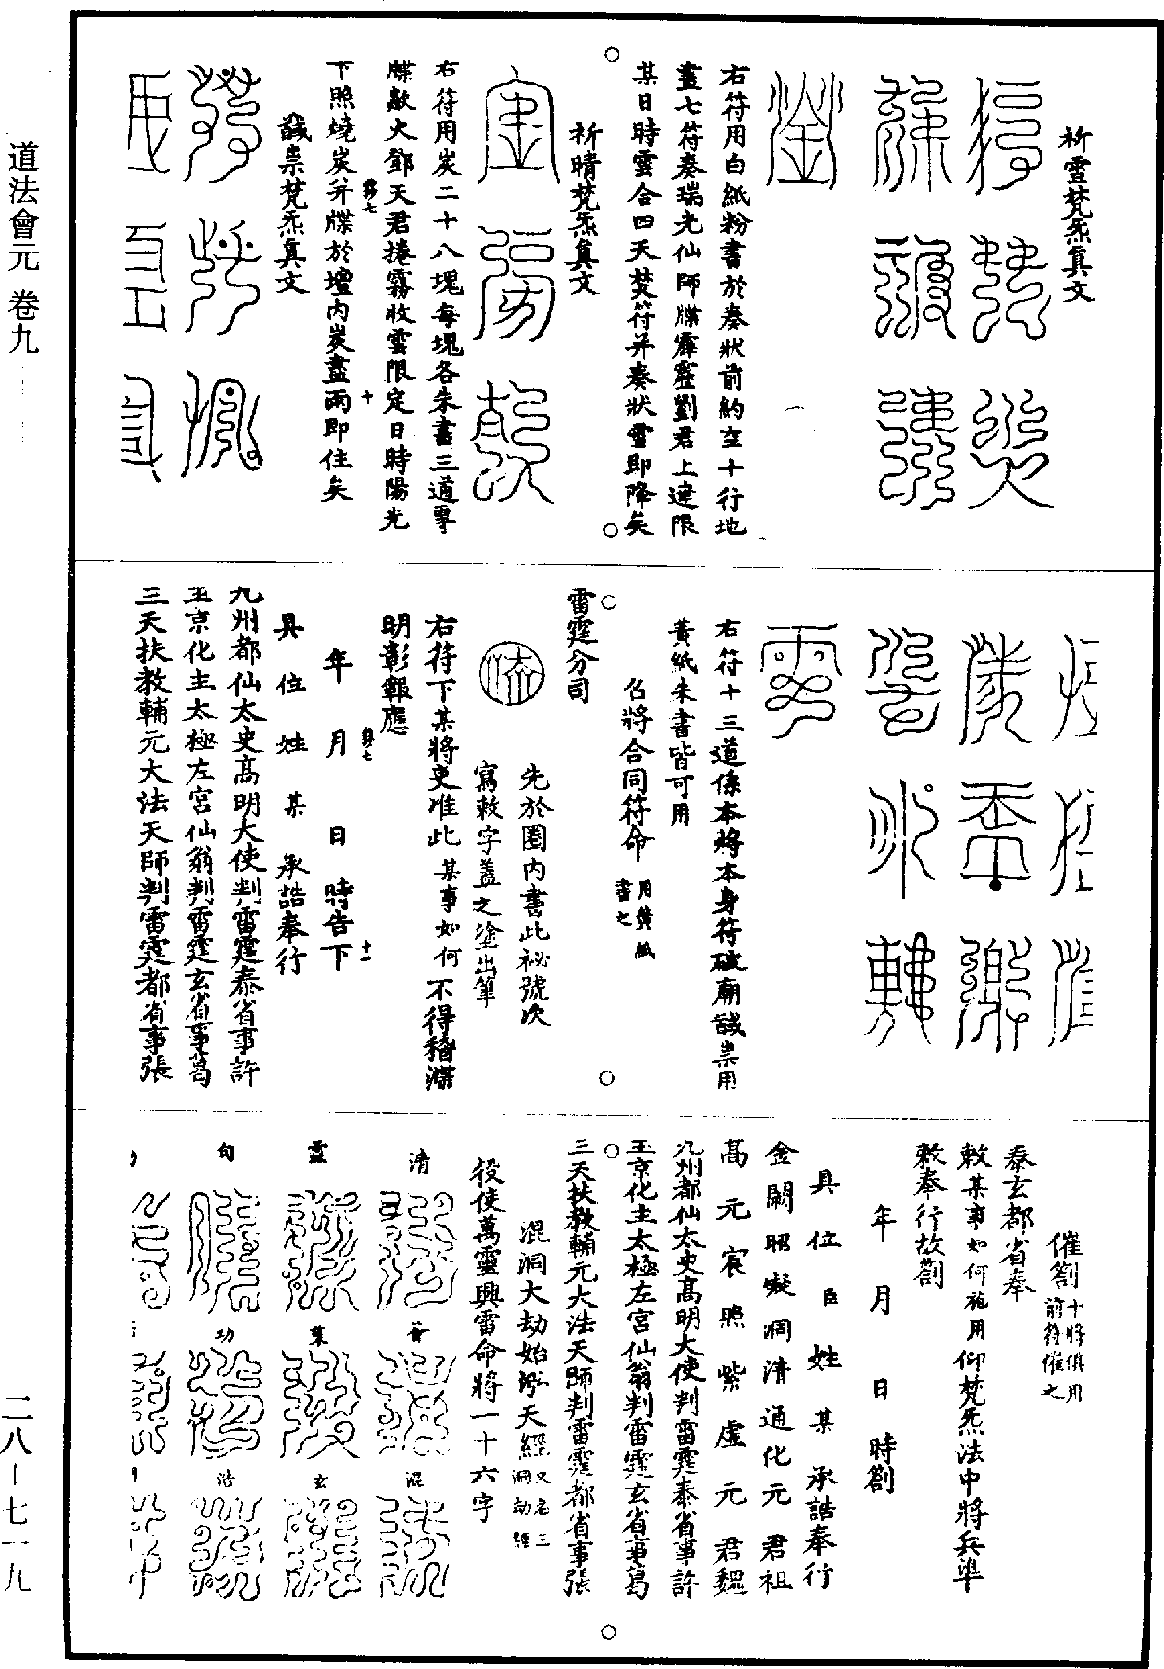 祈雪梵炁真文
右符用白紙粉書於奏狀前約空十行地
畫七符奏瑞光仙師牒霹靂劉君上達限
某日時雲合四天焚符并奏狀雪即降矣
祈晴梵炁真文
右符用炭二十八塊每塊各朱書三道專
牒歘火鄧天君捲霧收雲限定日時陽光
下照燒炭并牒於壇內炭盡雨即住矣
馘祟梵炁真文
右符十三道係本將本身符破廟馘祟用
黃紙朱書皆可用
召將合同符命 用黃紙書之
雷霆分司
先於圈內書此祕號次
寫敕字蓋之塗出筆
右符下某將吏准此某事如何不得稽滯
明彰報應
年 月 日 時告下
具 位 姓 某 承誥奉行
九州都仙太史高明大使判雷霆泰省事許
玉京化主太極左宮仙翁判雷霆玄省事葛
三天扶教輔元大法天師判雷霆都省事張
催劄 十將俱用前符催之
泰玄都省奉
敕某事如何施用仰梵炁法中將兵準
敕奉行故劄
年 月 日 時劄
具 位 臣 姓 某 承誥奉行
金闕昭凝洞清通化元君祖
高元宸照紫虛元君魏
九州都仙太史高明大使判雷霆泰省事許
玉京化主太極左宮仙翁判雷霆玄省事葛
三天扶教輔元大法天師判雷霆都省事張
混洞大劫始淛天經 又名三洞劫經
役使萬靈興雷命將一十六字
清
混
靈
葉
玄
勾
功
浩
道法會元 卷九
二八－七一九